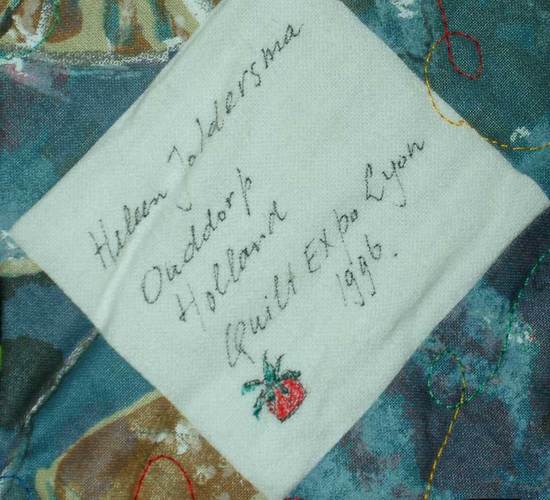 Heleen Joldersma
Ouddorp
Holland
Quilt Expo Lyon
1996.